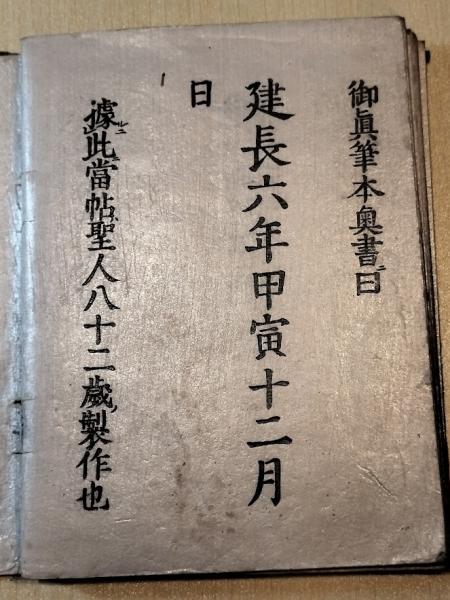 御眞筆本奥書ニ曰
建長六年甲寅十二月
日
據ルニ此ニ當帖ハ聖人八十二歳ノ製作也